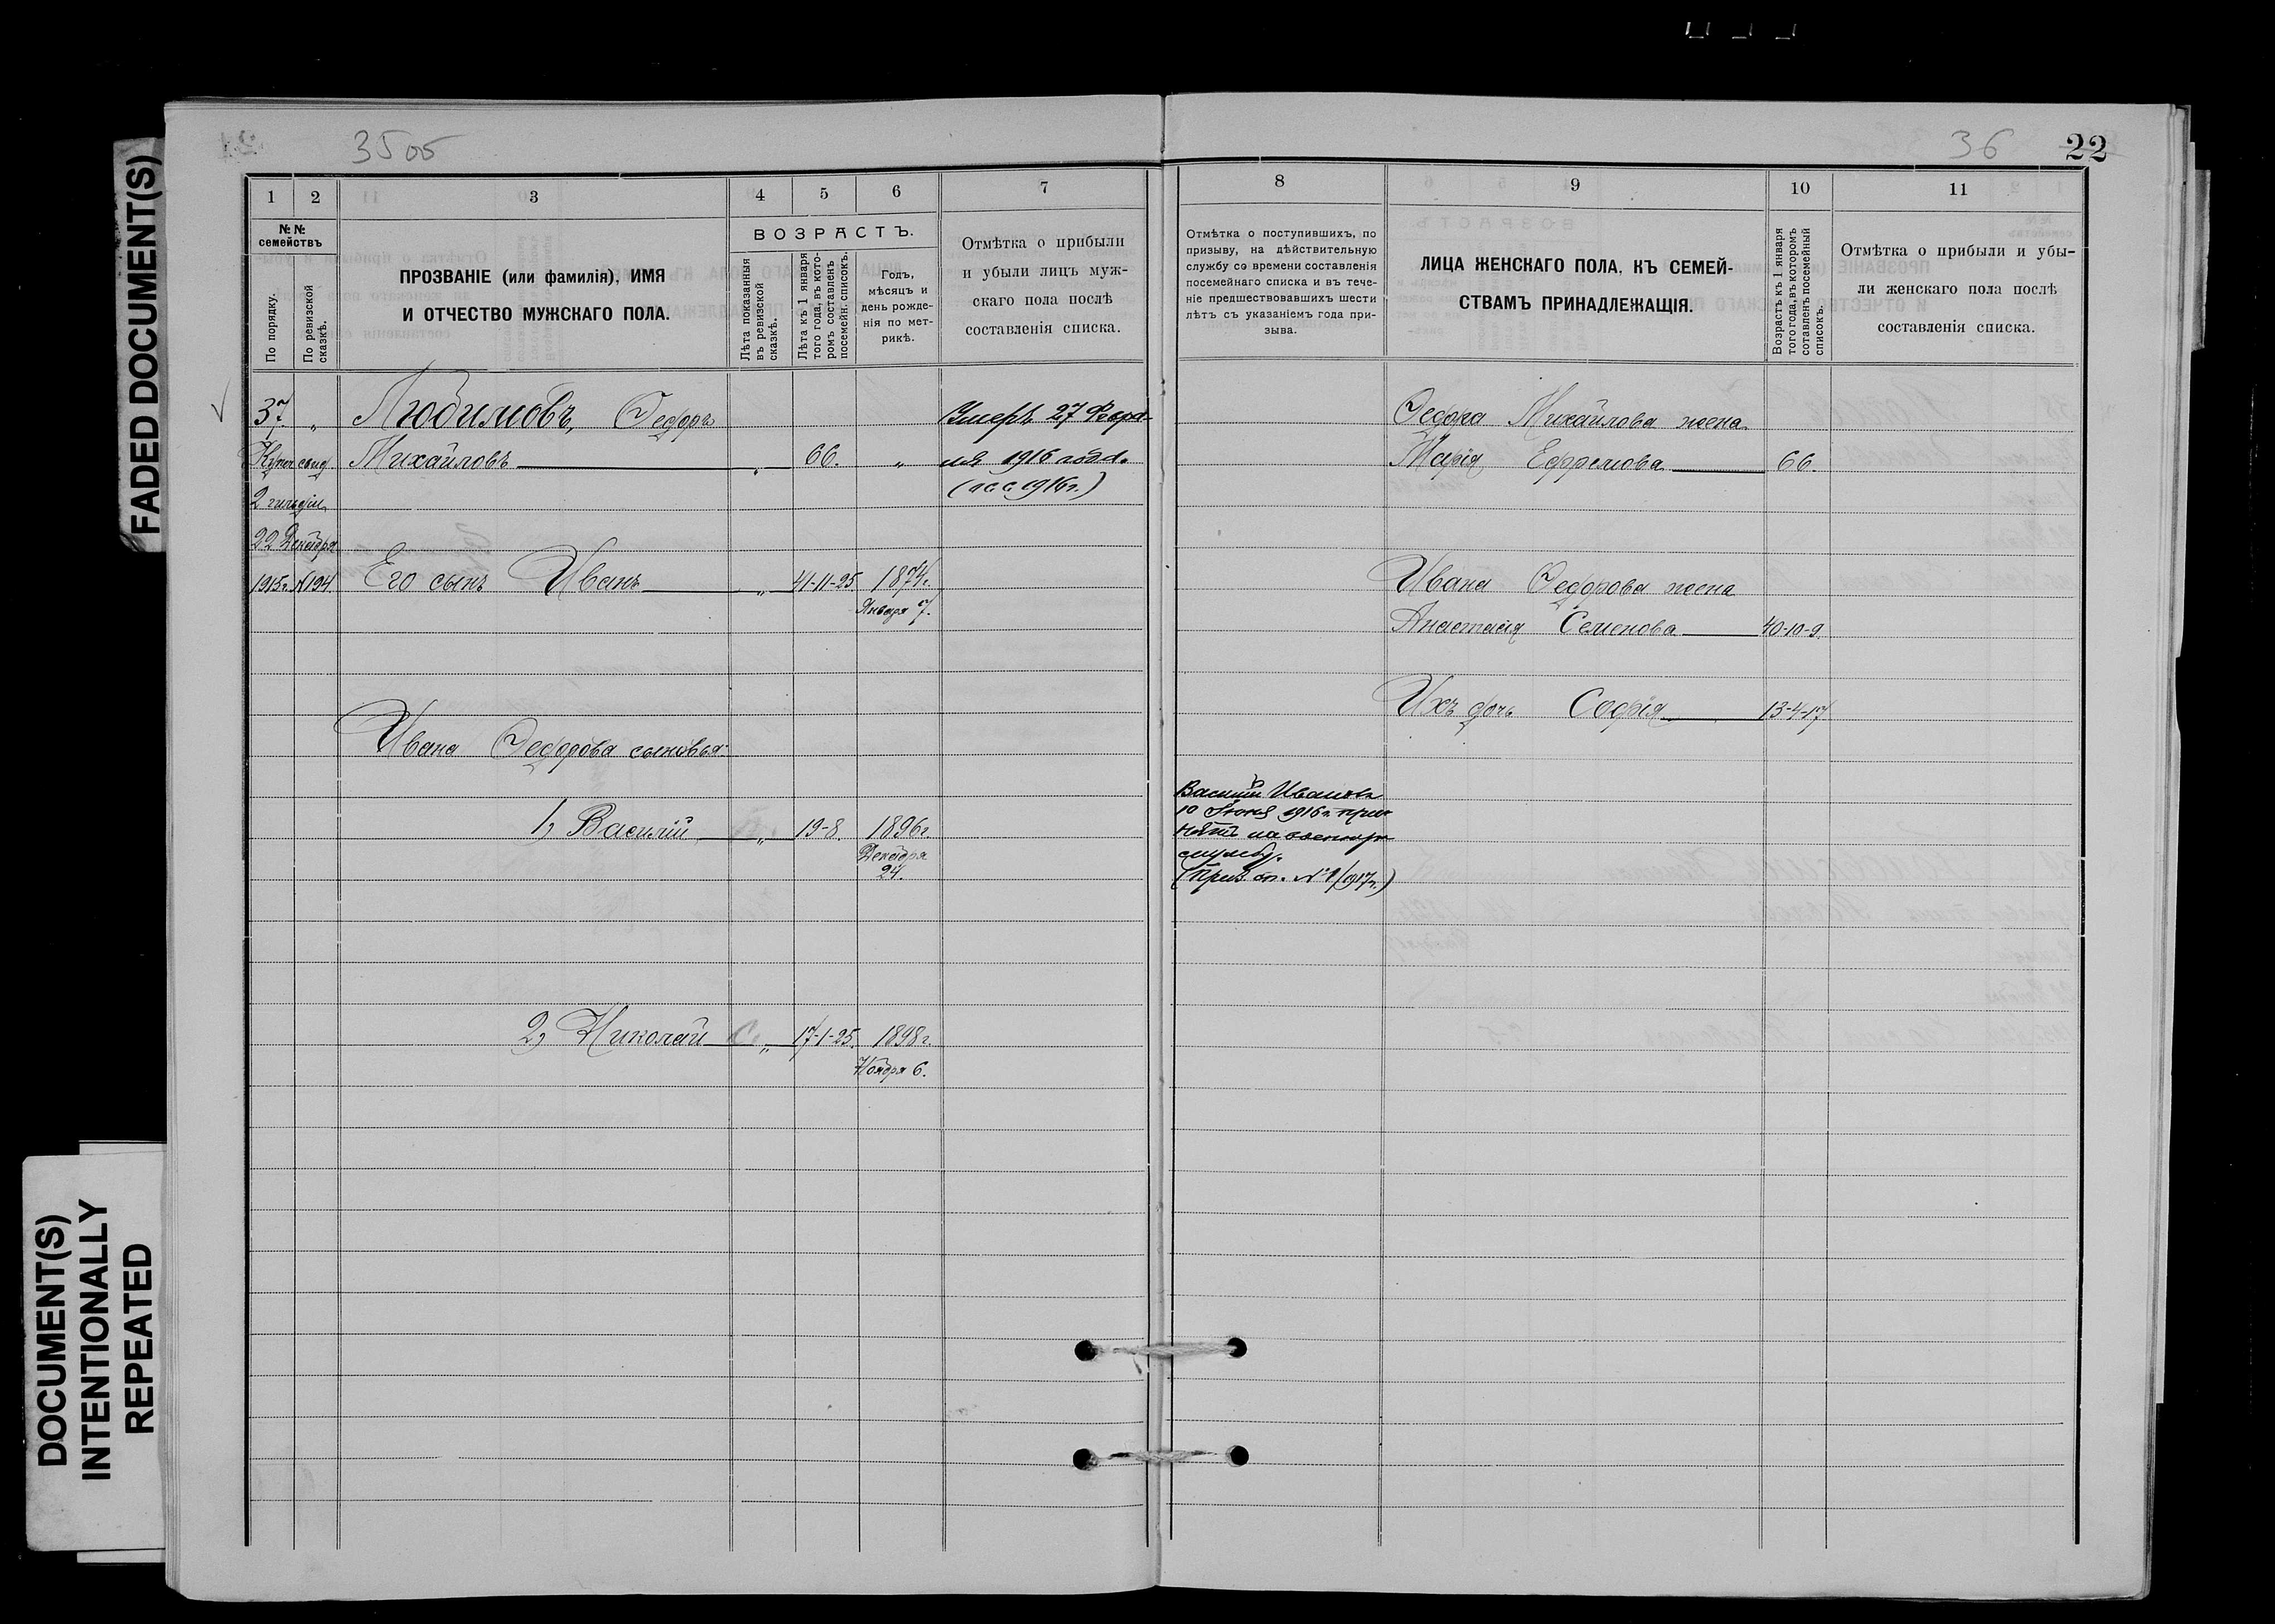 FADED DOCUMENT(S)
DOCUMENT(S)
INTENTIONALLY
REPEATED
35об
36
22
1
2
3
4
5
6
7
№№
семействъ
По порядку.
По ревизской
сказкѣ.
ПРОЗВАНІЕ (или фамилія), ИМЯ
И ОТЧЕСТВО МУЖСКАГО ПОЛА.
ВОЗРАСТЪ.
Лѣта показанныя
въ ревизской
сказкѣ.
Лѣта къ 1 января
того года, въ кото-
ромъ составленъ
посемейн. списокъ.
Годъ,
мѣсяцъ и
день рожде-
нія по мет-
рикѣ.
Отмѣтка о прибыли
и убыли лицъ муж-
скаго пола послѣ
составленія списка.
37. „ Любимовъ, Федоръ Умеръ 27 Февра-
Купеч. свид. Михайловъ „ 66. „ ля 1916 года.
2 гильдіи (п с с 1916 г.)
22 Декабря
1915 г. №194. Его сынъ Иванъ „ 41-11-25. 1874 г.
Января 7.
Ивана Федорова сыновья:
1, Василій „ 19-8. 1896 г.
Декабря
24.
2, Николай „ 17-1-25. 1898 г.
Ноября 6.
8
9
10
11
Отмѣтка о поступившихъ, по
призыву, на дѣйствительную
службу со времени составленія
посемейнаго списка и въ тече-
ніе предшествовавшихъ шести
лѣтъ съ указаніемъ года при-
зыва.
ЛИЦА ЖЕНСКАГО ПОЛА, КЪ СЕМЕЙ-
СТВАМЪ ПРИНАДЛЕЖАЩІЯ.
Возрастъ къ 1 января
того года, въ которомъ
составленъ посемейный
списокъ.
Отмѣтка о прибыли и убы-
ли женскаго пола послѣ
составленія списка.
Федора Михайлова жена
Марія Ефремова 66.
Ивана Федорова жена
Анастасія Семенова 40-10-9.
Ихъ дочь Софія 13-4-17
Василій Ивановъ
10 Іюня 1916 г. при-
нятъ на военную
службу.
(Приз. сп. №1/1917 г.)